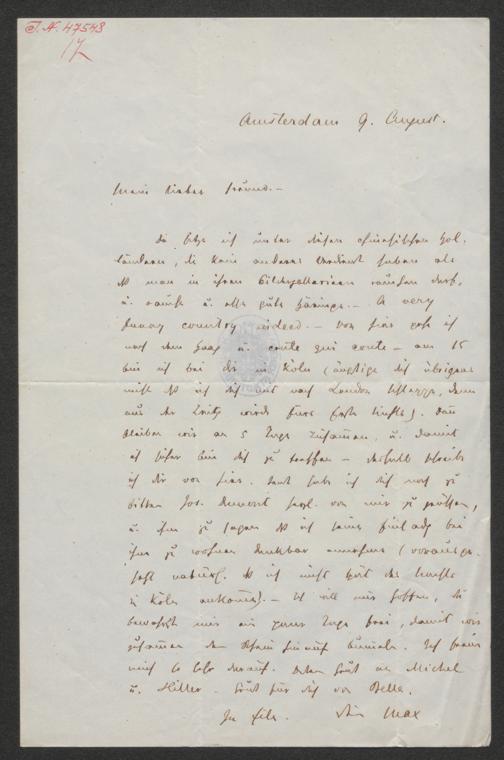 J. N. 47548
17
Amsterdam 9. August.
Mein lieber Freund. –
Da sitze ich unter diesen chinesischen Hol-
ländern, die kein anderes Verdienst haben als
daß man in ihren Bildergallerieen rauchen darf,
u. raucht u. alle gute Häringe. – A very
funny country indeed. – Von hier gehe ich
nach dem Haag u. coute qui coute – am 15
bin ich bei dir in Köln (ängstige dich übrigens
nicht daß ich dich mit nach London schleppe, denn
aus der wird fürs erste nichts). Dann
bleiben wir ein 5 Tage zusammen, u. damit
ich sicher bin dich zu treffen – deshalb schreibe
ich dir von hier. Auch habe ich dich noch zu
bitten Jos. Dumont herzl. von mir zu grüßen,
u. ihm zu sagen daß ich seine Einladg bei
ihm zu wohnen dankbar annehme (vorausge-
setzt natürl. daß ich nicht spät des Nachts
in Köln ankomme). – Ich will nur hoffen, du
bewahrst mir ein paar Tage frei, damit wir
zusammen den Rhein hinauf bummeln. Ich freue
mich so sehr darauf. Schön Gruß an Michel
u. Hiller. Gruß für dich von Bella.
In Eile. Dein Max